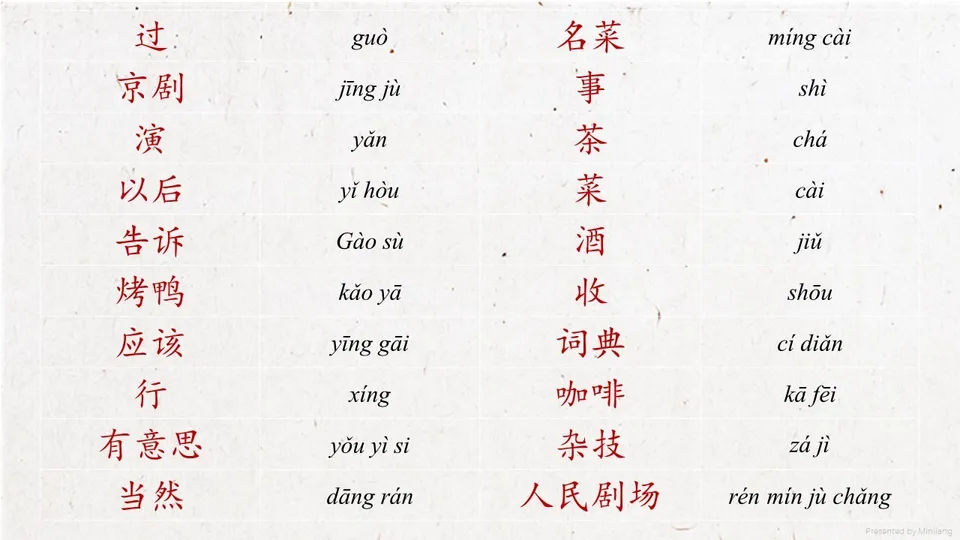 过 guò 名菜 míng cài
京剧 jīng jù 事 shì
演 yǎn 茶 chá
以后 yǐ hòu 菜 cài
告诉 Gào sù 酒 jiǔ
烤鸭 kǎo yā 收 shōu
应该 yīng gāi 词典 cí diǎn
行 xíng 咖啡 kā fēi
有意思 yǒu yì si 杂技 zá jì
当然 dāng rán 人民剧场 rén mín jù chǎng
Presented by Minjiang